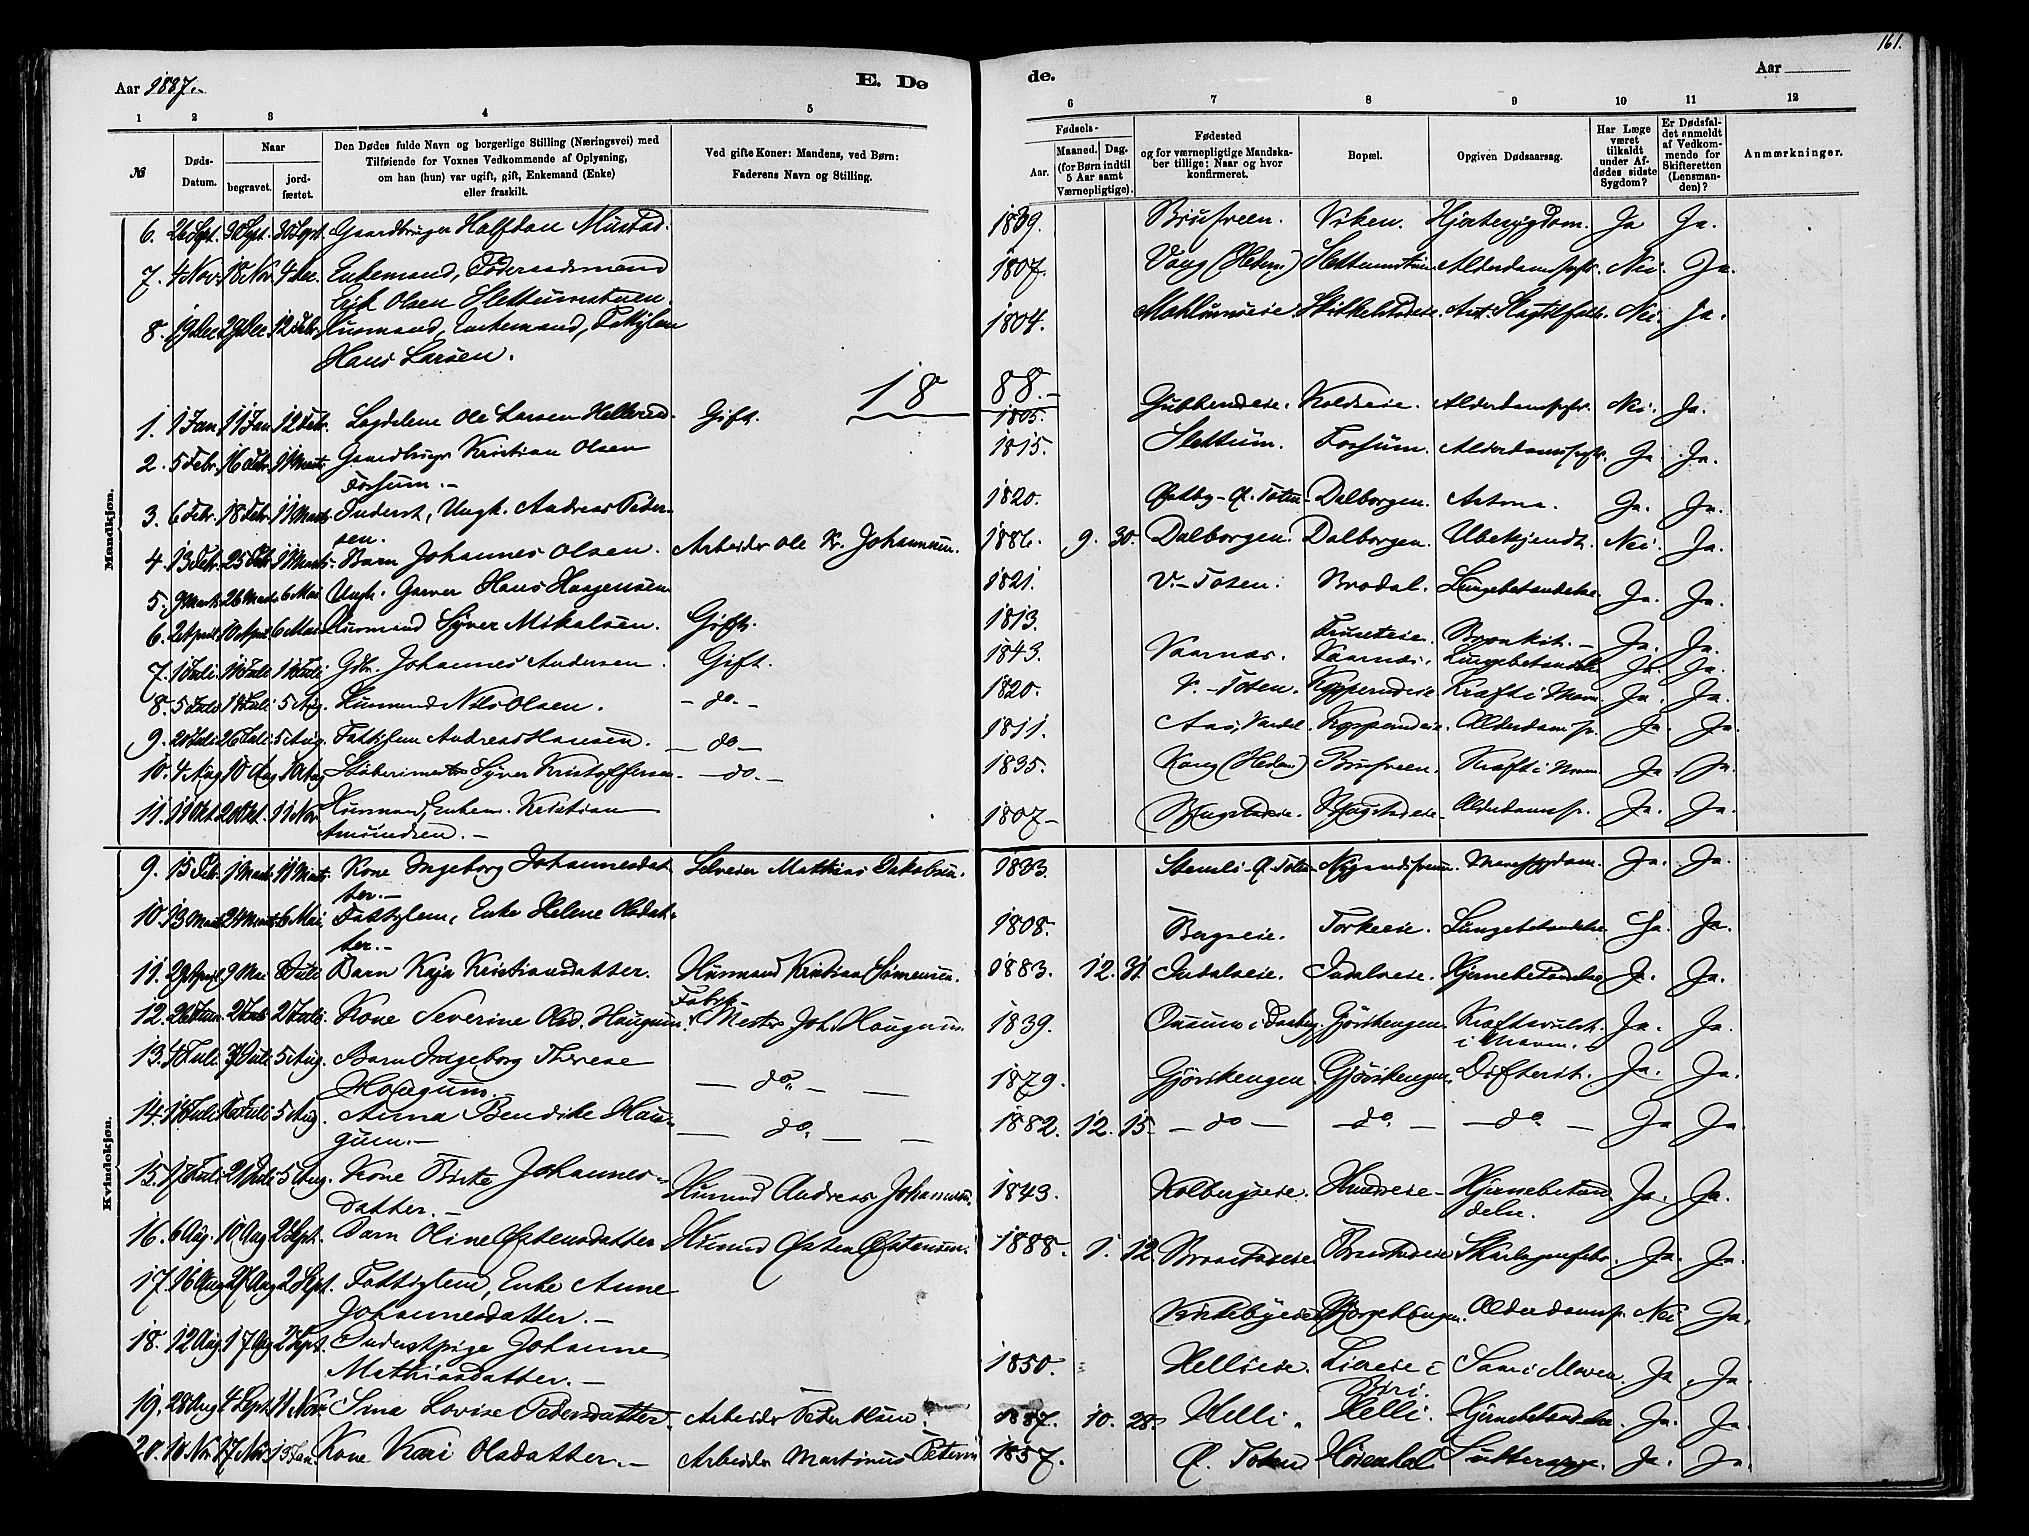 161.
Aar 1887.
E. Dø
de.
Aar
1 2 3 4 5 6 7 8 9 10 11 12
№
Døds-Datum.
Naar
begravet.
jord-fæstet.
Den Dødes fulde Navn og borgerlige Stilling (Næringsvei) med
Tilføiende for Voxnes Vedkommende af Oplysning,
om han (hun) var ugift, gift, Enkemand (Enke)
eller fraskilt.
Ved gifte Koner: Mandens, ved Børn:
Faderens Navn og Stilling.
Fødsels-
Aar.
Maaned. Dag.
(for Børn indtil
5 Aar samt
Værnepligtige).
Fødested
og for værnepligtige Mandska-
ber tillige: Naar og hvor
konfirmeret.
Bopæl.
Opgiven Dødsaarsag.
Har Læge
været
tilkaldt
under Af-
dødes sidste
Sygdom?
Er Dødsfal-
det anmeldt
af Vedkom-
mende for
Skifteretten
(Lensman-
den)?
Anmærkninger.
Mandkjøn.
6. 26 Sept. 30 Sept. 30 Sept. Gaardbruger Halfdan Mustad. 1839. Brufveen. Viken. Hjertesygdom. Ja Ja.
7. 4 Nov. 18 Nov. 4 Dec. Enkemand, Føderaadsmand 1807. Vang (Hedem.) Slettumstuen Alderdomssygd. Nei. Ja.
Erik Olsen Slettumstuen.
8. 19 Dec 29 Dec 12 Febr. Husmand, Enkemand, Fattiglem 1804. Skikkelstadeie. Nei. Ja.
Hans Larsen.
18 88.-
1. 1 Jan 11 Jan 12 Febr. Ole Larsen Gift. 1805. Alderdomssygd. Nei. Ja.
2. 5 Febr. 16 Febr. 11 Marts Gaardbruger Kristian Olsen 1815. Slettum. Fossum. Alderdomssygd. Ja. Ja.
Fossum.-
3. 6 Febr. 18 Febr. 11 Marts Inderst, Ungk. Andreas Peder- 1820. Østby-Ø. Toten. Dalborgen. Astma. Ja. Ja.
sen.
4. 13 Febr. 25 Febr. 11 Marts Barn Johannes Olsen. Arbeider Ole Kr. Johannesen. 1886. 9. 30. Dalborgen. Dalborgen. Ubekjendt. Nei. Ja.
5. 9 Marts 26 Marts 6 Mai Ungk. Garver Hans Haagensen 1821. V.-Toten. Brodal. Lungebetændelse. Ja. Ja.
6. 2 April 10 April 6 Mai Husmand Syver Mikalsen. Gift. 1813. Bronkit.- Ja. Ja.
7. 1 Juli 11 Juli 11 Juli Gdbr. Johannes Andersen. Gift. 1843. Vaarnæs. Vaarnæs. Lungebetændelse Ja. Ja.
8. 5 Juli 18 Juli 5 Aug. Husmand Nils Olsen. - do.- 1820. V.-Toten. Kopperudeie Kræft i Maven Ja. Ja.
9. 20 Juli 26 Juli 5 Aug. Fattiglem Andreas Hansen. - do - 1811. Aas, Vardal. Kopperudeie. Alderdomssp. Ja. Ja.
10. 4 Aug 10 Aug 10 Aug Støberimester Syver Kristoffersen. - do.- 1835. Vang (Hedem.) Brufveen. Kræft i Maven Ja. Ja.
11. 11 Okt. 20 Okt. 11 Nov. Husmand, Enkem. Kristian 1807- Alderdomssp. Ja. Ja.
Amundsen.-
Kvindekjøn.
9. 15 Febr. 1 Marts 11 Marts Kone Ingeborg Johannesdat- Selveier Matthias Jakobsen. 1833. Stensli-Ø. Toten Mavesygdom. Ja. Ja.
ter.-
10. 13 Marts 24 Marts 6 Mai. Fattiglem, Enke Helene Olsdat- 1808. Bergseie. Torkeeie. Lungebetændelse Ja. Ja.
ter.-
11. 29 April 9 Mai Juli Barn Kaja Kristiansdatter. Husmand Kristian Simensen. 1883. 12. 31. Indalseie. Indalseie. Hjernebetændelse Ja. Ja.
12. 26 Juni 2 Juli 2 Juli. Kone Severine Olsd. Haugum. Fabrik-Mester Joh. Haugum. 1839. Gjøvikengen. Kræftsvulst Ja. Ja.
i Maven.
13. 4 Juli 7 Juli 5 Aug. Barn Ingeborg Therese - do. - - 1879. Gjøvikengen. Gjøvikengen. Difterit. Ja. Ja.
Haugum.
14. 11 Juli 16 Juli 5 Aug. - Anna Bendikte Hau- - do. - - 1882. 12. 15. - do - - do. - - do. - Ja Ja.
gum.-
15. 17 Juli 21 Juli 5 Aug. Kone Birte Johannes- Husmd Andreas Johannesen. 1843. Kolbergseie. Hjernebetæn Ja. Ja.
datter.- delse.
16. 6 Aug. 10 Aug 2 Sept. Barn Oline Østensdatter Husmd Østen Østensen. 1888. 1. 12. Braastadeie Braastadeie Skarlagensfeber Ja. Ja.
17. 16 Aug 27 Aug 2 Sept. Fattiglem, Enke Anne Kirkebyeie Alderdomssp. Nei Ja.
Johannesdatter.-
18. 12 Aug 17 Aug 2 Sept. Inderstpige Johanne 1850. Hellseie. Lieneie i Saar i Maven Ja. Ja.
Mathiasdatter.- Biri.
19. 28 Aug 4 Sept. 11 Nov. Sina Lovise Pedersdatter. Arbeider Peder Olsen. 1887. 10. 28. Helli. Helli. Hjernebetændelse. Ja. Ja.
20. 10 Nov 17 Nov 13 Jan. Kone Kari Olsdatter.- Arbeider Martinus Petersen 1857. Ø. Toten Ja. Ja.